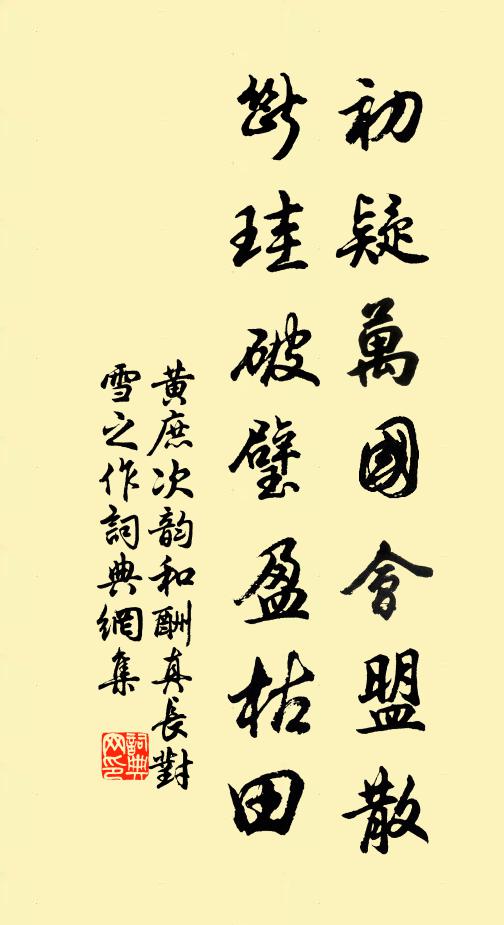 初疑萬國會盟散
斷珪破璧盈枯田
黃庶次韵和酬真長對
雪之作詞典網集
詞典
网印